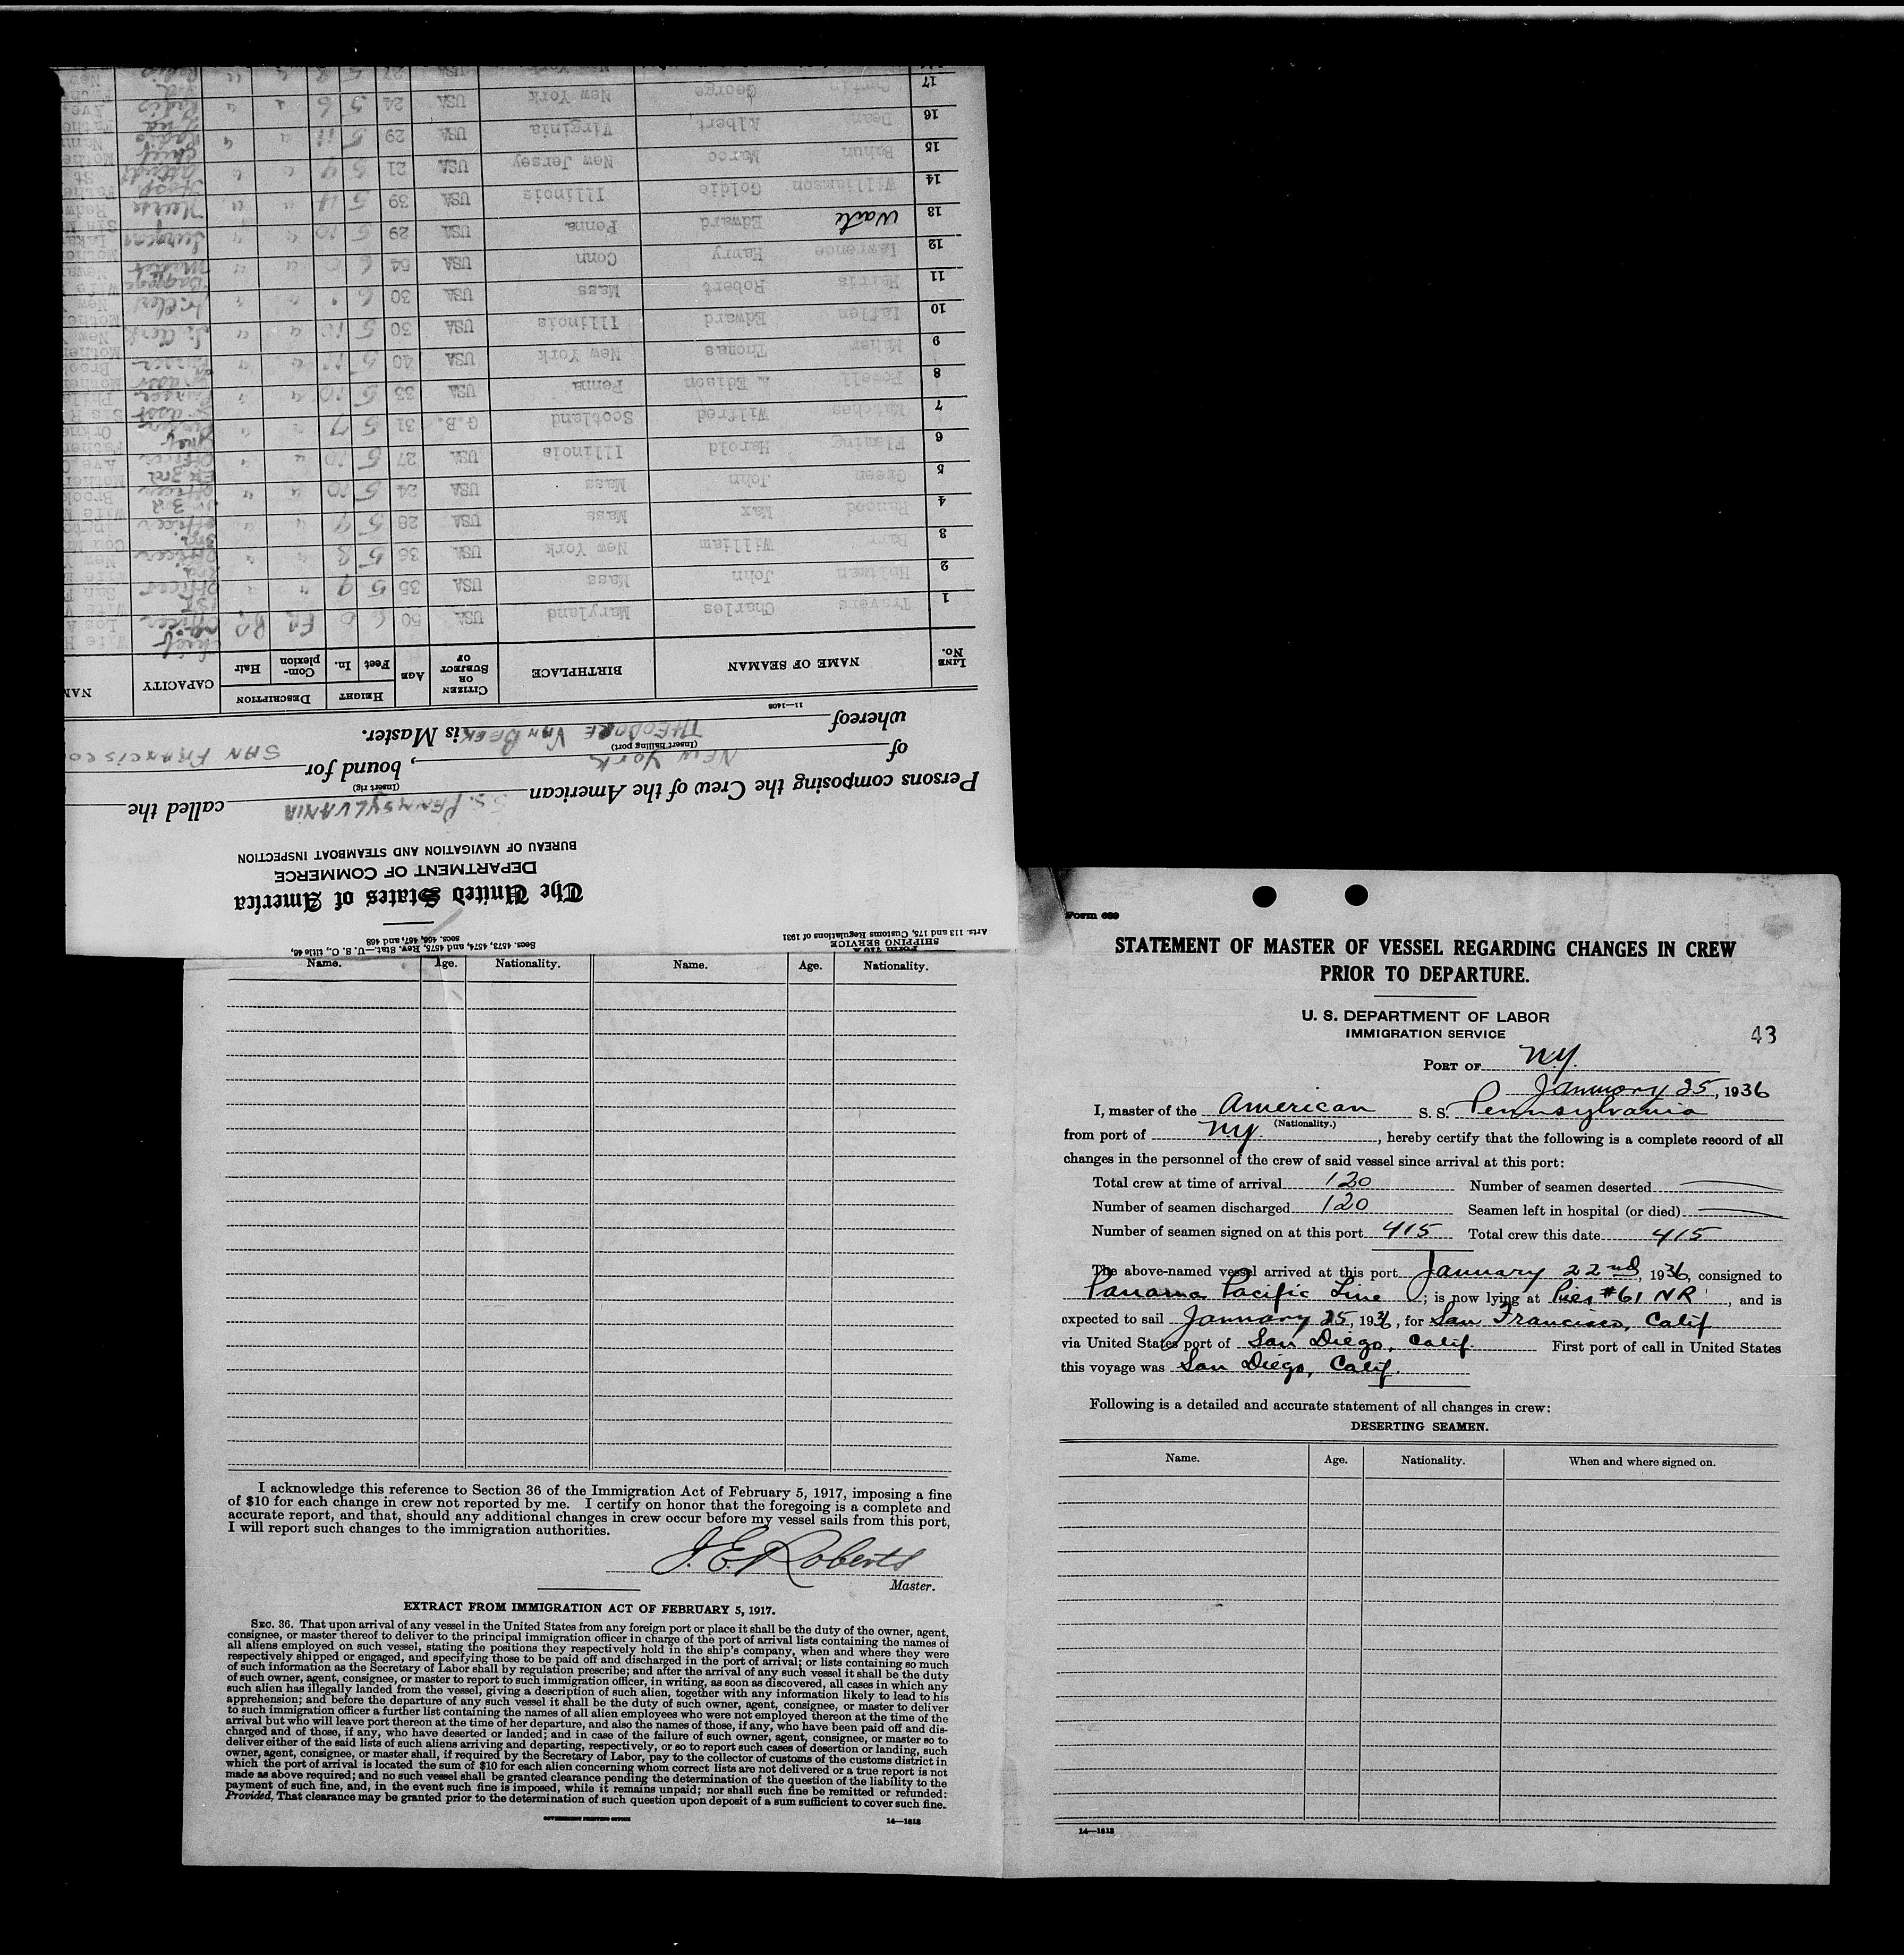 Form 689
STATEMENT OF MASTER OF VESSEL REGARDING CHANGES IN CREW
PRIOR TO DEPARTURE.
U. S. DEPARTMENT OF LABOR
IMMIGRATION SERVICE
43
PORT OF N.Y.
January 25, 1936
I, master of the American S. S. Pennsylvania
(Nationality.)
from port of N.Y., hereby certify that the following is a complete record of all
changes in the personnel of the crew of said vessel since arrival at this port:
Total crew at time of arrival 120 Number of seamen deserted
Number of seamen discharged 120 Seamen left in hospital (or died)
Number of seamen signed on at this port 415 Total crew this date 415
The above-named vessel arrived at this port January 22nd, 1936, consigned to
Panama Pacific Line; is now lying at Pier #61 NR, and is
expected to sail January 25, 1936, for San Francisco, Calif
via United States port of San Diego, Calif. First port of call in United States
this voyage was San Diego, Calif.
Following is a detailed and accurate statement of all changes in crew:
DESERTING SEAMEN.
Name. Age. Nationality. When and where signed on.
14—1813
Name. Age. Nationality. Name. Age. Nationality.
I acknowledge this reference to Section 36 of the Immigration Act of February 5, 1917, imposing a fine
of $10 for each change in crew not reported by me. I certify on honor that the foregoing is a complete and
accurate report, and that, should any additional changes in crew occur before my vessel sails from this port,
I will report such changes to the immigration authorities.
J. E. Roberts
Master.
EXTRACT FROM IMMIGRATION ACT OF FEBRUARY 5, 1917.
SEC. 36. That upon arrival of any vessel in the United States from any foreign port or place it shall be the duty of the owner, agent,
consignee, or master thereof to deliver to the principal immigration officer in charge of the port of arrival lists containing the names of
all aliens employed on such vessel, stating the positions they respectively hold in the ship's company, when and where they were
respectively shipped or engaged, and specifying those to be paid off and discharged in the port of arrival; or lists containing so much
of such information as the Secretary of Labor shall by regulation prescribe; and after the arrival of any such vessel it shall be the duty
of such owner, agent, consignee, or master to report to such immigration officer, in writing, as soon as discovered, all cases in which any
such alien has illegally landed from the vessel, giving a description of such alien, together with any information likely to lead to his
apprehension; and before the departure of any such vessel it shall be the duty of such owner, agent, consignee, or master to deliver
to such immigration officer a further list containing the names of all alien employees who were not employed thereon at the time of the
arrival but who will leave port thereon at the time of her departure, and also the names of those, if any, who have been paid off and dis-
charged and of those, if any, who have deserted or landed; and in case of the failure of such owner, agent, consignee, or master so to
deliver either of the said lists of such aliens arriving and departing, respectively, or so to report such cases of desertion or landing, such
owner, agent, consignee, or master shall, if required by the Secretary of Labor, pay to the collector of customs of the customs district in
which the port of arrival is located the sum of $10 for each alien concerning whom correct lists are not delivered or a true report is not
made as above required; and no such vessel shall be granted clearance pending the determination of the question of the liability to the
payment of such fine, and, in the event such fine is imposed, while it remains unpaid; nor shall such fine be remitted or refunded:
Provided, That clearance may be granted prior to the determination of such question upon deposit of a sum sufficient to cover such fine.
GOVERNMENT PRINTING OFFICE 14—1813
Form 710 A
SHIPPING SERVICE
Arts. 113 and 175, Customs Regulations of 1931
Secs. 4573, 4574, and 4575, Rev. Stat.—U. S. C., title 46,
secs. 466, 467, and 468
The United States of America
DEPARTMENT OF COMMERCE
BUREAU OF NAVIGATION AND STEAMBOAT INSPECTION
Persons composing the Crew of the American S.S. PENNSYLVANIA called the
(Insert rig)
of NEW YORK, bound for SAN FRANCISCO
(Insert hailing port)
whereof THEODORE VAN BEEK is Master.
11—1408
LINE No. NAME OF SEAMAN BIRTHPLACE CITIZEN OR SUBJECT OF AGE HEIGHT Feet In. DESCRIPTION Com-plexion Hair CAPACITY NAM
1 Travers Charles Maryland USA 50 6 0 FR BR Chief Officer
2 Holtman John Mass USA 35 5 9 " " 1st Officer
3 Barr William New York USA 36 5 8 " " Officer
4 Pancod Max Mass USA 28 5 9 " " Officer
5 Green John Mass USA 24 5 10 " " Jr 3rd Officer
6 Fleming Harold Illinois USA 27 5 10 " " Ex 3rd Officer
7 Matches Wilfred Scotland G.B. 31 5 7 " " Chief Purser
8 Powell A Edison Penna USA 33 5 10 " " Sr asst Purser
9 Maher Thomas New York USA 40 5 11 " " asst Purser
10 Laflen Edward Illinois USA 30 5 10 " " Sr. Clerk
11 Harris Robert Mass USA 30 6 " " Jr. Clerk
12 Lawrence Harry Conn USA 54 6 0 " " Baggage Master
13 Waite Edward Penna USA 29 5 10 " " Surgeon
14 Williamson Goldie Illinois USA 39 5 4 " " Nurse
15 Bahun Marco New Jersey USA 21 5 4 " " Hosp. attndt
16 Dean Albert Virginia USA 29 5 11 " " Chief Radio
17 Curtin George New York USA 24 5 6 " " 2nd Radio